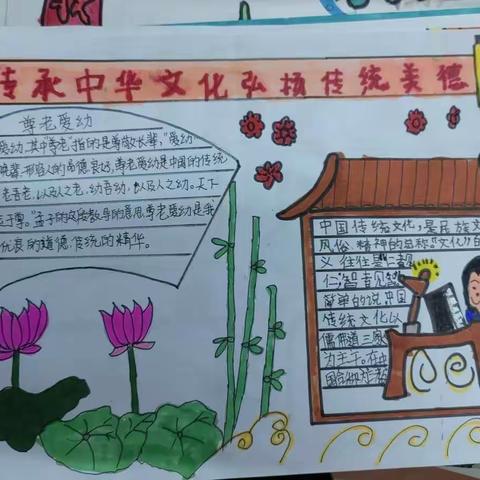 传承中华文化弘扬传统美德
尊老爱幼
爱幼,其中"尊老"指的是尊敬长辈,"爱幼
晚辈,形容人的品德良好,尊老爱幼是中国的传统
老吾老,以及人之老,幼吾幼,以及人之幼。天下
于掌。"孟子的这段教导的意思尊老爱幼是我
优良的道德,传统的精华。
中国传统文化,是民族文
风俗、精神的总称"文化"的
义往往是"仁者见
仁,智者见智
简单的说,中国
传统文化以
儒佛道三家
为主干。在中